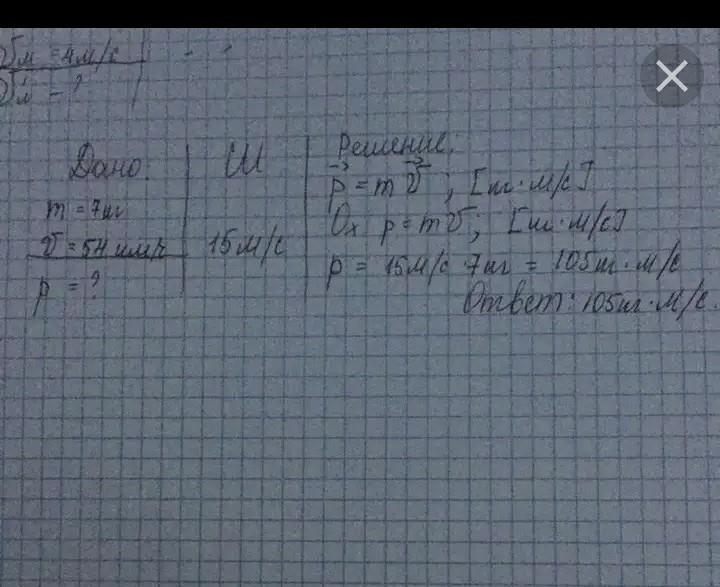 υм = 4м/с
υм - ?
Дано:
m = 7кг
υ = 54 км/ч
p = ?
СИ
15м/с
Решение:
p⃗ = m υ⃗ ; [кг·м/с]
Ox p = mυ; [кг·м/с]
p = 15м/с 7кг = 105кг·м/с
Ответ: 105кг·м/с.